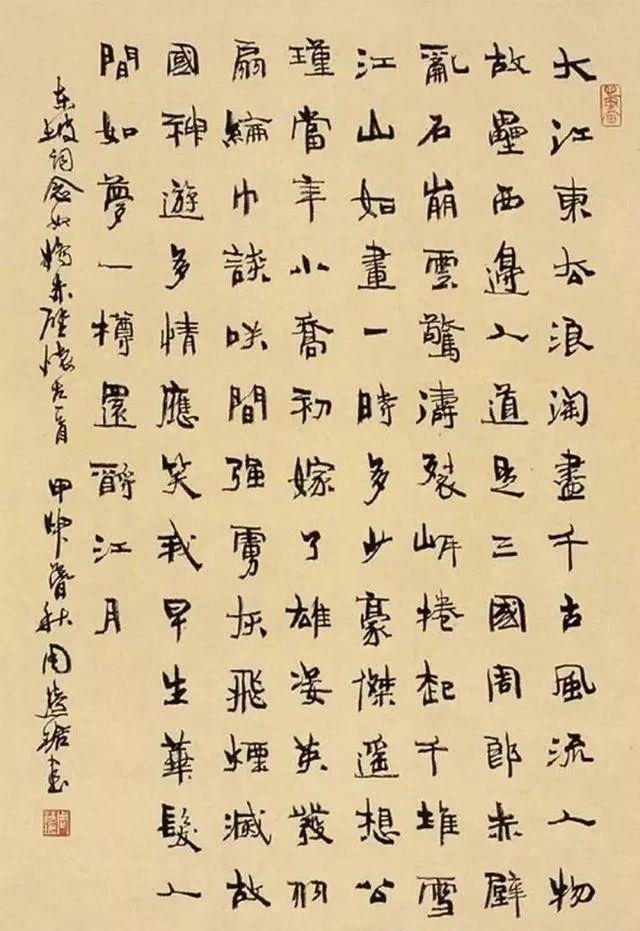 大江東去浪淘盡千古風流人物
故壘西邊人道是三國周郎赤壁
亂石崩雲驚濤裂岸捲起千堆雪
江山如畫一時多少豪傑遥想公
瑾當年小喬初嫁了雄姿英發羽
扇綸巾談咲間强虜灰飛煙滅故
國神遊多情應笑我早生華髮人
間如夢一樽還酹江月
东坡詞念奴嬌赤壁懷古一首 甲申暮秋周慧珺書